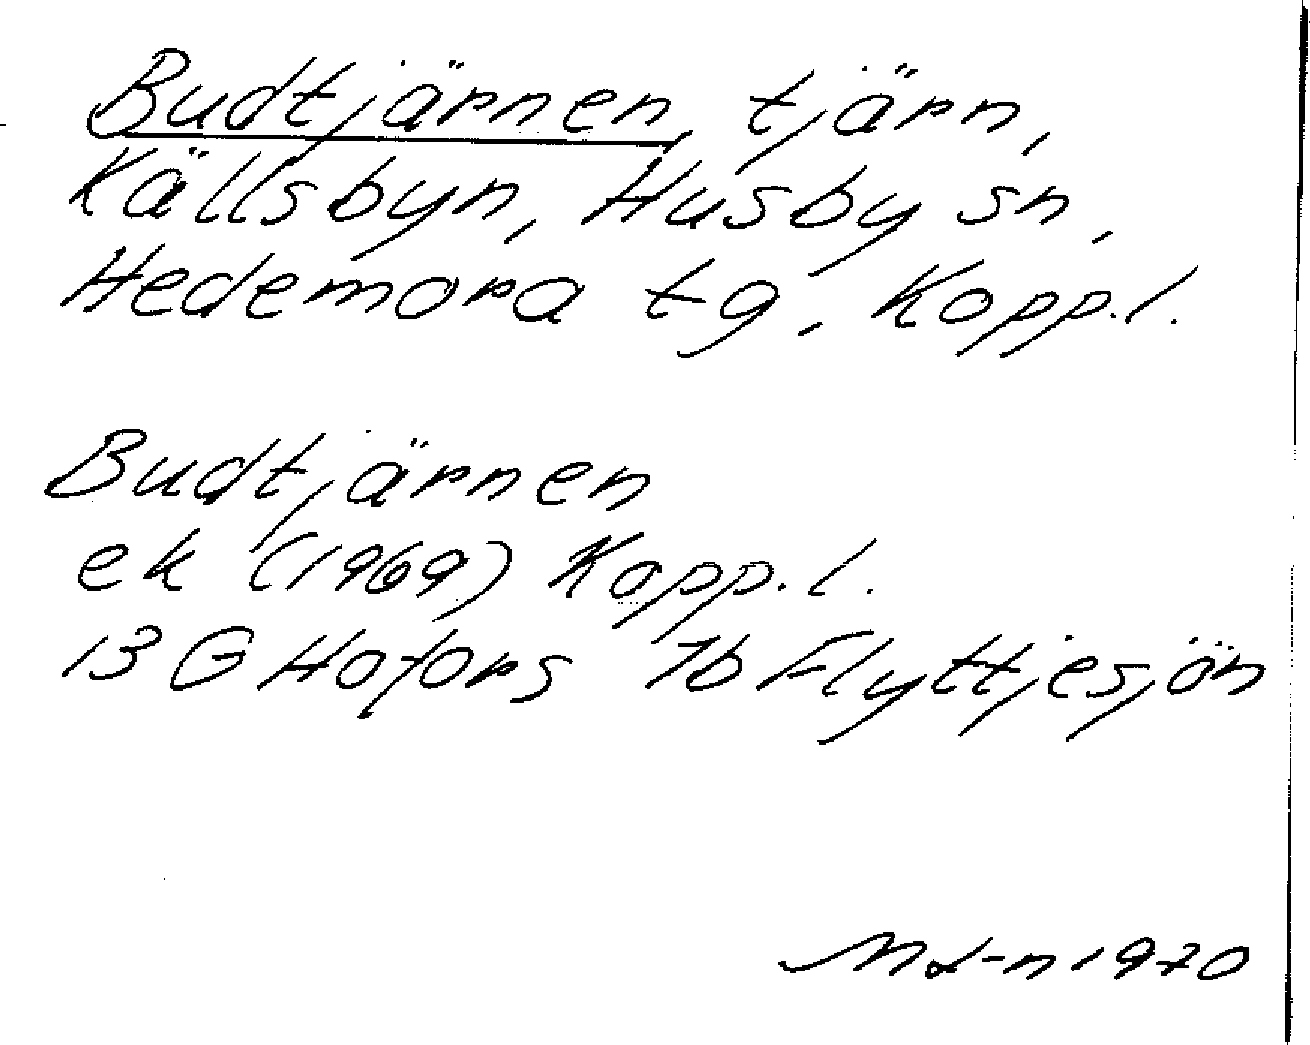 Budtjärnen, tjärn,
Källsbyn, Husby sn,
Hedemora tg, Kopp.l.
Budtjärnen
ek (1969) Kopp.l.
13 G Hofors 1b Flyttjesjön
1970